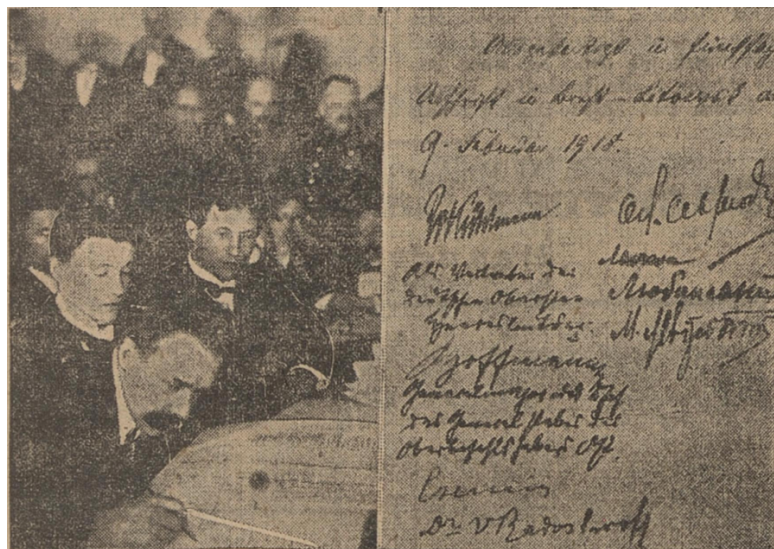 Ausgefertigt in
Urschrift in Brest-Litowsk
9. Februar 1918.
Kühlmann
Als Vertreter der
deutschen Obersten
Heeresleitung:
Hoffmann
Generalmajor und Chef
des Generalstabes des
Oberbefehlshabers Ost.
Czernin
Dr. v Radoslawoff
Ол. Севрюк
М.